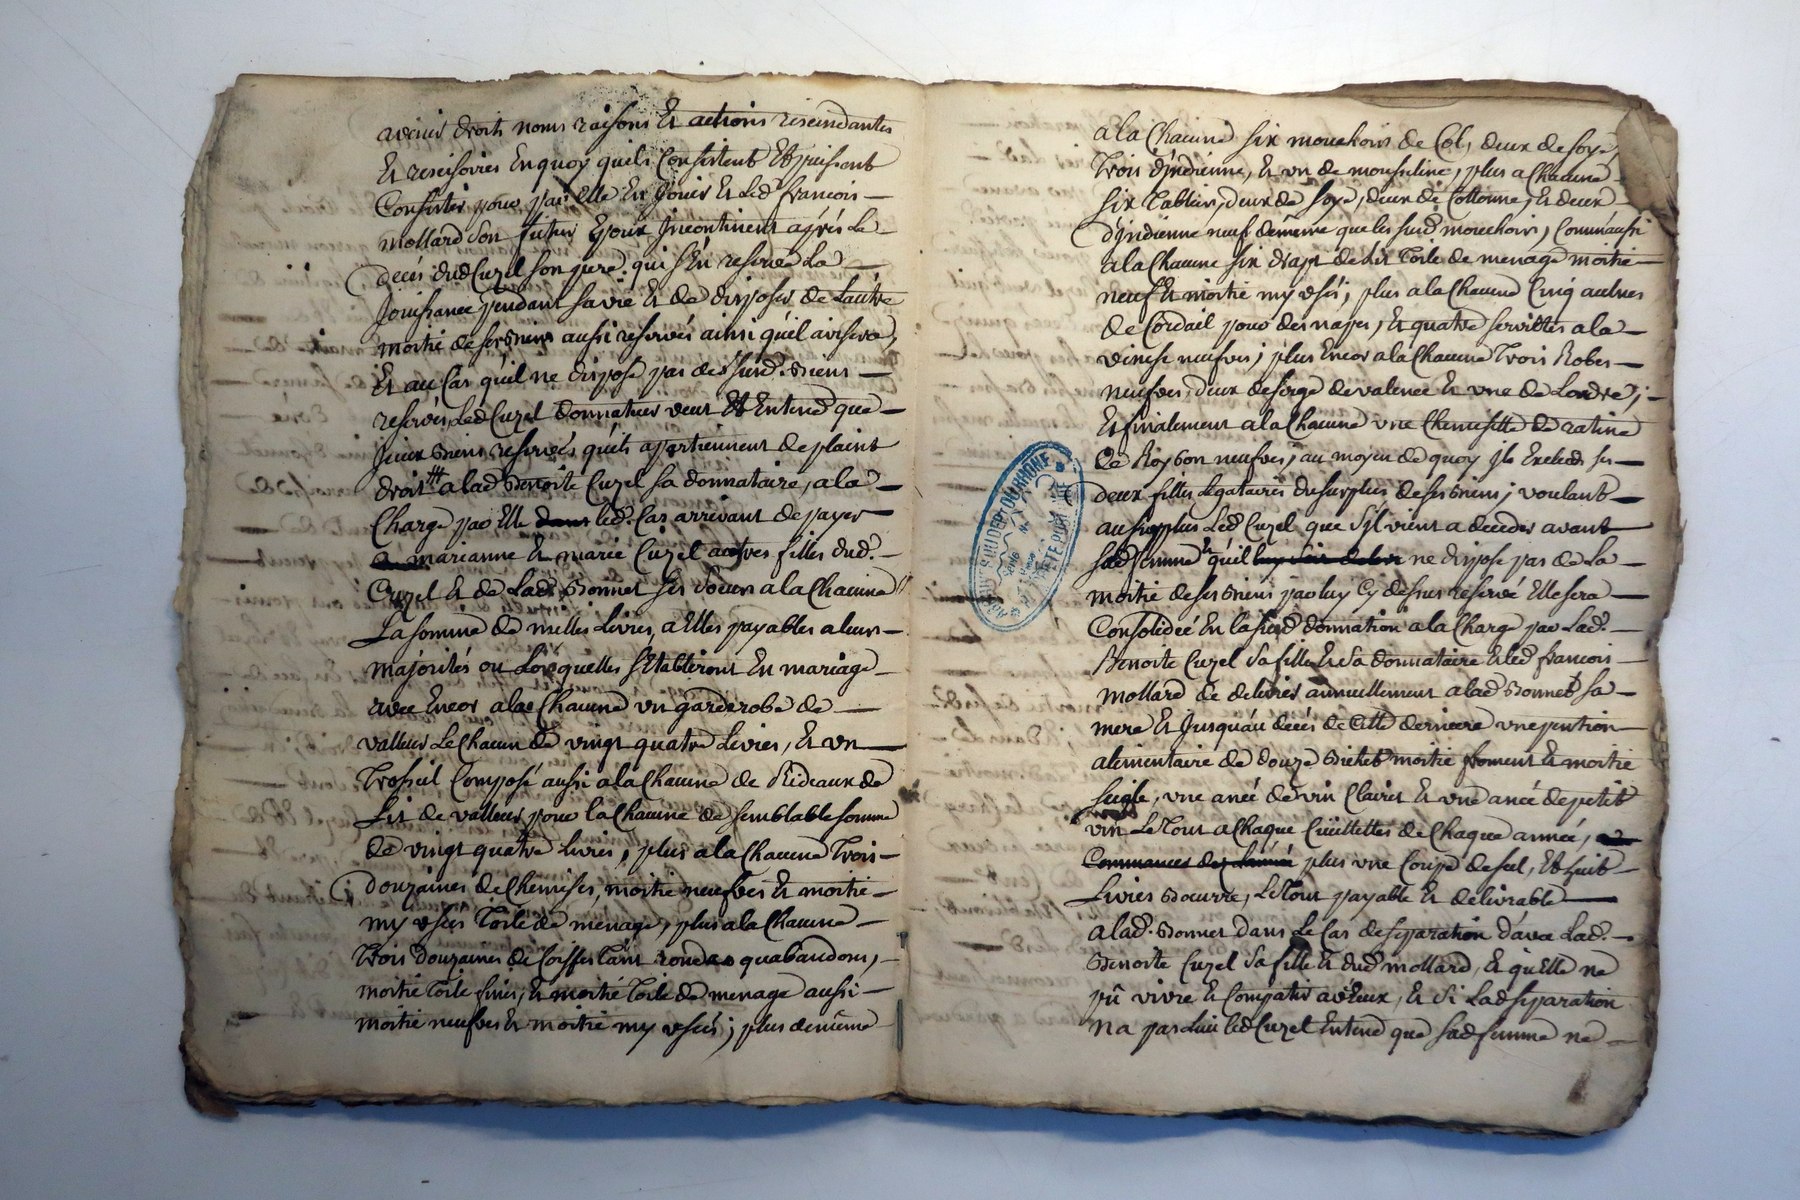 avenir droits noms raisons Et actions rescindantes
Et rescisoires En quoy quils Consistent Et puissent
Consister pour par Elle En Jouir Et Led francois
mollard son futur Epoux Jncontinent après Le
decés dud Cuzel son pere qui s'En reserve La
Jouissance pendant sa vie Et de disposer de Lautre
moitié de ses Biens aussi reservés ainsi quil avisera,
Et au Cas qu'il ne dispose pas des susd. Biens
reservés, Led Cuzel donnateur veut Et Entend que
Jceux Biens reservés quils apartiennent de plaint
droit # a lad Benoite Cuzel sa donnataire, a la
Charge par Elle led. Cas arrivant de payer
marianne Et marie Cuzel autres filles dud.
Cuzel Et de Lad. Bonnet ses soeurs a la Chacune
La somme de milles Livres, a Elles payables a leurs
majorités ou Lorsquelles s'Etabliront En mariage
avec Encor a la Chacune un garderobe de
valleur Le Chacun de vingt quatre Livres, Et un
Trossel Composé aussi a la Chacune de Rideaux de
Lit de valleur pour la Chacune de semblable somme
de vingt quatre Livres, plus a la Chacune Trois
douzaines de Chemises, moitié neufves Et moitié
my usés Toile de menage, plus a la Chacune
Trois douzaines de Coiffes tant rondes quabandons,
moitié Toile fines, Et moitié Toile de menage aussi
moitié neufves Et moitié my usés ; plus demême
a la Chacune six mouchoirs de Col, deux de soye,
Trois d'jndienne, Et un de mousseline, plus a Chacune
six Tabliers, deux de soye, deux de Cottonne, Et deux
d'jndienne neuf demême que les susd mouchoirs, Comm'aussi
a la Chacune six draps de Lit Toile de menage moitié
neuf Et moitié my usés ; plus a la Chacune Cinq autnes
de Cordail pour des napes, Et quatre serviettes a la
venise neufves ; plus Encor a la Chacune Trois Robes
neufves, deux de serge de valence Et une de Londre ;
Et finalement a la Chacune une Chemisette de ratine
de Roybon neufves, au moyen de quoy Jls Exclud ses
deux filles Legataires du surplus de ses Biens ; voulant
au surplus Led Cuzel que s'il vient a deceder avant
sad femme Et quil ne dispose pas de La
moitié de ses Biens par luy Cy dessus reservé Elle sera
Consolideé En la susd donnation a la Charge par Lad.
Benoite Cuzel sa fille Et sa donnataire Et led francois
mollard de delivrer annuellement a lad Bonnet sa
mere Et Jusqu'au decés de Cette derniere une pention
alimentaire de douze Bichets moitié froment Et moitié
seigle, une aneé de vin Clairet Et une aneé de petit
vin Le Tout a Chaque Cüillettes de Chaque année,
plus une Coupe de sel, Et huit
Livres Beurre, Le Tout payable Et delivrable
a lad. Bonnet dans Le Cas de separation d'avec Lad.
Benoite Cuzel sa fille Et dud mollard, Et qu'Elle ne
pû vivre Et Compatir avec Eux, Et si Lad separation
na pas Lieu led Cuzel Entend que sad femme ne